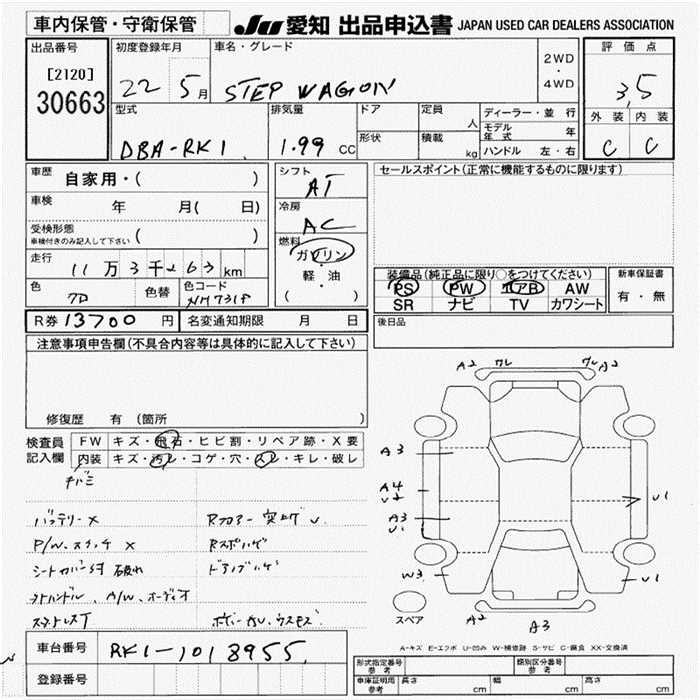 車内保管・守衛保管
JU 愛知 出品申込書 JAPAN USED CAR DEALERS ASSOCIATION
出品番号
[2120]
30663
初度登録年月
22 5月
車名・グレード
STEP WAGON
2WD
・
4WD
評価点
3,5
外装 内装
C C
型式
DBA-RK1
排気量
1.99 CC
ドア
定員
人
形状
積載
kg
ディーラー・並行
モデル年式 年
ハンドル 左・右
車歴 自家用・( )
車検 年 月( 日)
受検形態
車検付きのみ記入して下さい ( )
走行 11万3千263km
色 色替 色コード
NH731P
シフト
AT
冷房
AC
燃料
ガソリン
軽・油
( )
セールスポイント(正常に機能するものに限ります)
装備品(純正品に限り○をつけてください)
PS PW エアB AW
SR ナビ TV カワシート
新車保証書
有・無
R券 13700 円 名変通知期限 月 日
後日品
注意事項申告欄(不具合内容等は具体的に記入して下さい)
修復歴 有 (箇所 )
検査員
記入欄
FW キズ・飛石・ヒビ割・リペア跡・X要
内装 キズ・汚レ・コゲ・穴・スレ・キレ・破レ
バッテリー X
Rフロアー 突上ゲ U
P/W.スイッチ X
シートカバー
A/W.オーディオ
A2 ワレ ワレ A2
A3
A4
U2
A3
U1
W3
U1
U1
スペア
A2
A3
A-キズ E-エクボ U-凹み W-補修跡 S-サビ C-腐食 XX-交換済
車台番号 RK1-1018955
登録番号
形式指定番号
参考
類別区分番号
参考
車庫証明用
参考
長さ cm 幅 cm 高さ cm